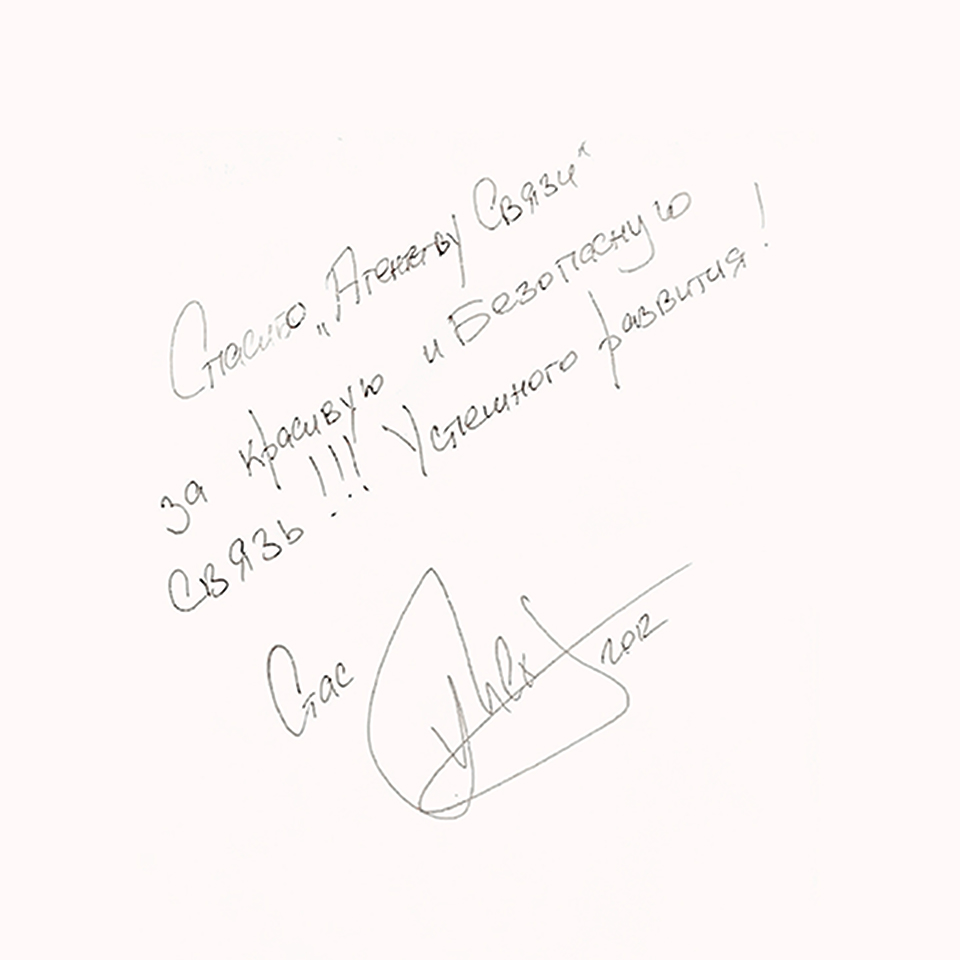 Спасибо „Агенству Связи“
за красивую и Безопасную
связь!!! Успешного развития!
Стас
2012